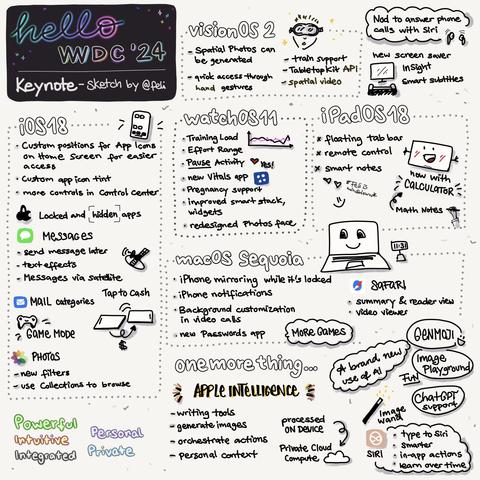 hello
WWDC '24
Keynote - sketch by @feli
visionOS 2
- Spatial Photos can
be generated
- quick access through
hand gestures
- train support
- Tabletopkit API
- spatial video
Nod to answer phone
calls with Siri
new screen saver
InSight
Smart subtitles
iOS18
- Custom positions for App Icons
on Home Screen for easier
access
- Custom app icon tint
- more controls in Control Center
Locked and hidden apps
MESSAGES
- send message later
- text effects
- Messages via satellite
MAIL categories
Tap to Cash
GAME MODE
$
PHOTOS
- new filters
- use Collections to browse
watchOS11
- Training Load
- Effort Range
- Pause Activity
YES!
- new Vitals app
- Pregnancy support
- improved smart stack,
widgets
- redesigned Photos face
iPadOS18
* floating tab bar
* remote control
* smart notes
now with
CALCULATOR
Math Notes
macOS Sequoia
- iPhone mirroring while it's locked
- iPhone notifications
- Background customization
in video calls
- new Passwords app
MORE GAMES
11:31
SAFARI
- summary & reader view
- video viewer
one more thing...
APPLE INTELLIGENCE
- writing tools
- generate images
- orchestrate actions
- personal context
processed
ON DEVICE
Private Cloud
Compute
A brand new
use of AI
GENMOJI
Image
Playground
FUN
ChatGPT
support
Image
wand
SIRI
- type to Siri
- smarter
- in-app actions
- learn over time
Powerful
Intuitive
Integrated
Personal
Private